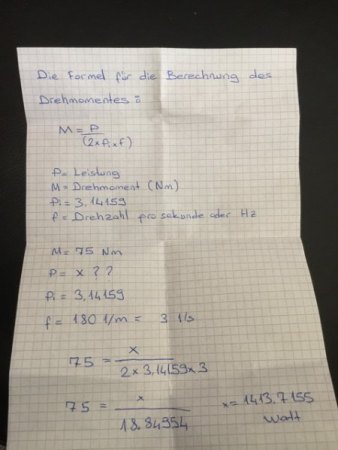 Die Formel für die Berechnung des
Drehmomentes :
M = P / (2 x Pi x f)
P = Leistung
M = Drehmoment (Nm)
Pi = 3,14159
f = Drehzahl pro sekunde oder Hz
M = 75 Nm
P = x ? ?
Pi = 3,14159
f = 180 1/m = 3 1/s
75 = x / 2 x 3,14159 x 3
75 = x / 18.84954 x = 1413,7155
Watt